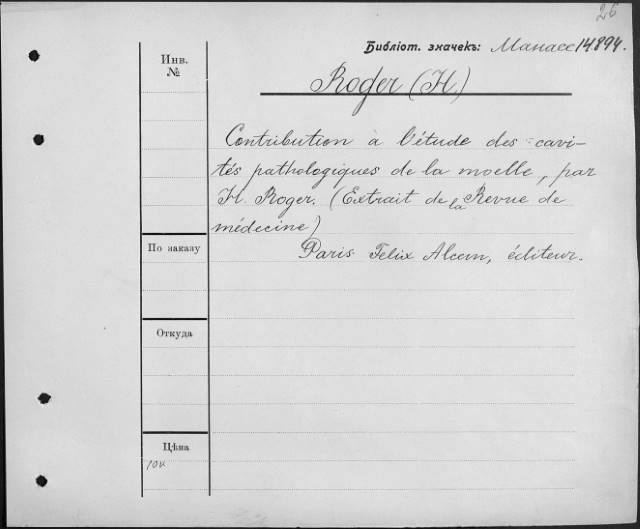 26
Библіот. значекъ: Манасс 14.894.
Инв.
№
Roger (H)
Contribution à l'étude des cavi-
tés pathologiques de la moelle, par
H. Roger. (Extrait de la Revue de
médecine)
По заказу
Paris Felix Alcan, éditeur.
Откуда
Цѣна
10к